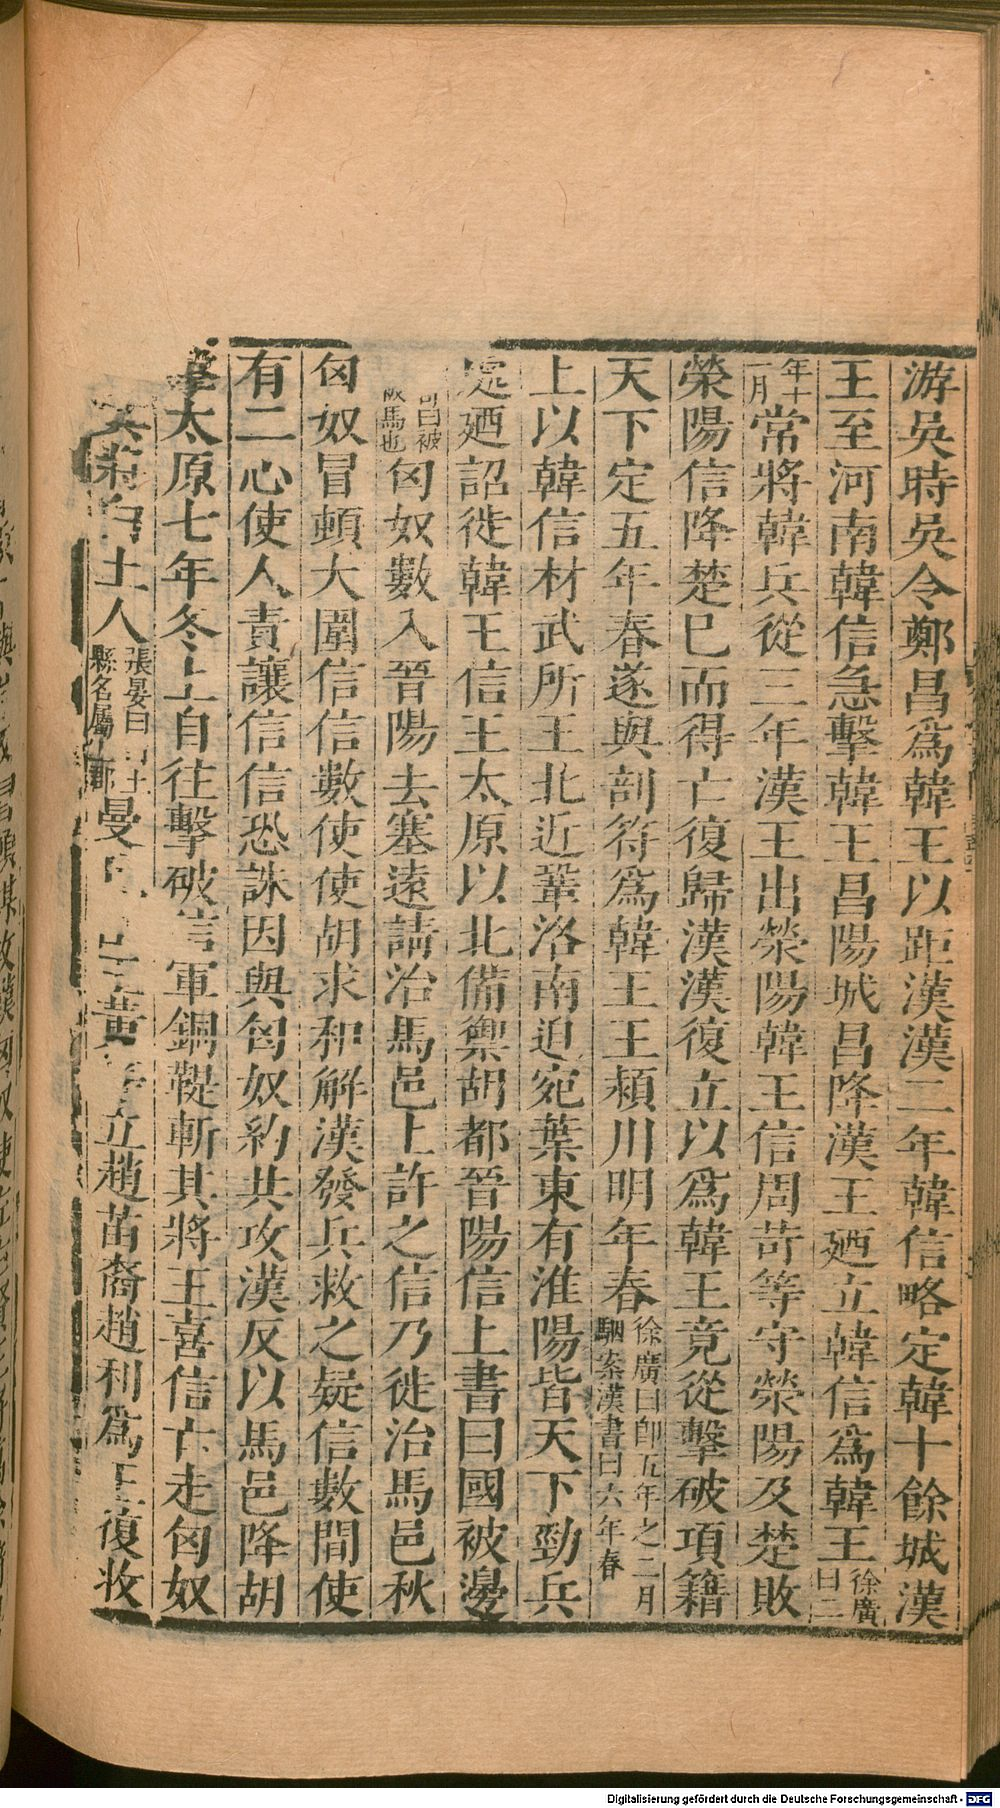 游吳時吳令鄭昌爲韓王以距漢漢二年韓信略定韓十餘城漢
王至河南韓信急擊韓王昌陽城昌降漢王廼立韓信爲韓王徐廣曰二
年十一月常將韓兵從三年漢王出滎陽韓王信周苛等守滎陽及楚敗
榮陽信降楚巳而得亡復歸漢漢復立以爲韓王竟從擊破項籍
天下定五年春遂與剖符爲韓王王潁川明年春徐廣曰卽五年之二月駰案漢書曰六年春
上以韓信材武所王北近鞏洛南迫宛葉東有淮陽皆天下勁兵
處廼詔徙韓王信王太原以北備禦胡都晉陽信上書曰國被邊
曰被馬也匈奴數入晉陽去塞遠請治馬邑上許之信乃徙治馬邑秋
匈奴冒頓大圍信信數使使胡求和解漢發兵救之疑信數間使
有二心使人責讓信信恐誅因與匈奴約共攻漢反以馬邑降胡
擊太原七年冬上自往擊破信軍銅鞮斬其將王喜信亡走匈奴
白土人張晏曰白土縣名屬上郡曼王黃等立趙苗裔趙利爲王復收
Digitalisierung gefördert durch die Deutsche Forschungsgemeinschaft - DFG